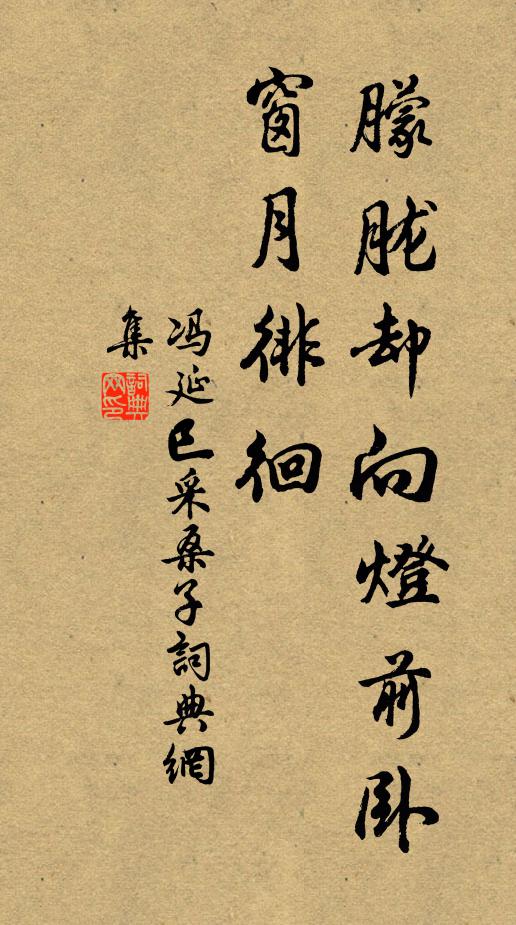 朦胧却向燈前卧
窗月徘徊
冯延巳采桑子詞典網
集
詞典网印